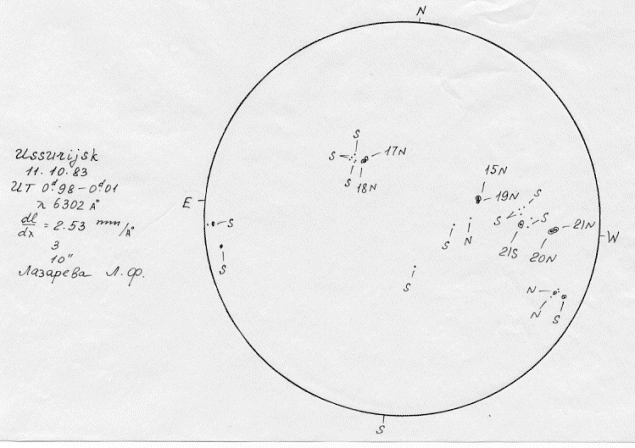 N
Ussurijsk
11.10.83
UT 0ᵈ.98 – 0ᵈ.01
λ 6302 Aº
dl/dλ = 2.53 mm/Aº
3
10"
Лазарева Л. Ф.
E
W
S
S
S
17N
S
18N
15N
19N
S
S
S
21N
21S
20N
S
N
S
S
S
N
N
S